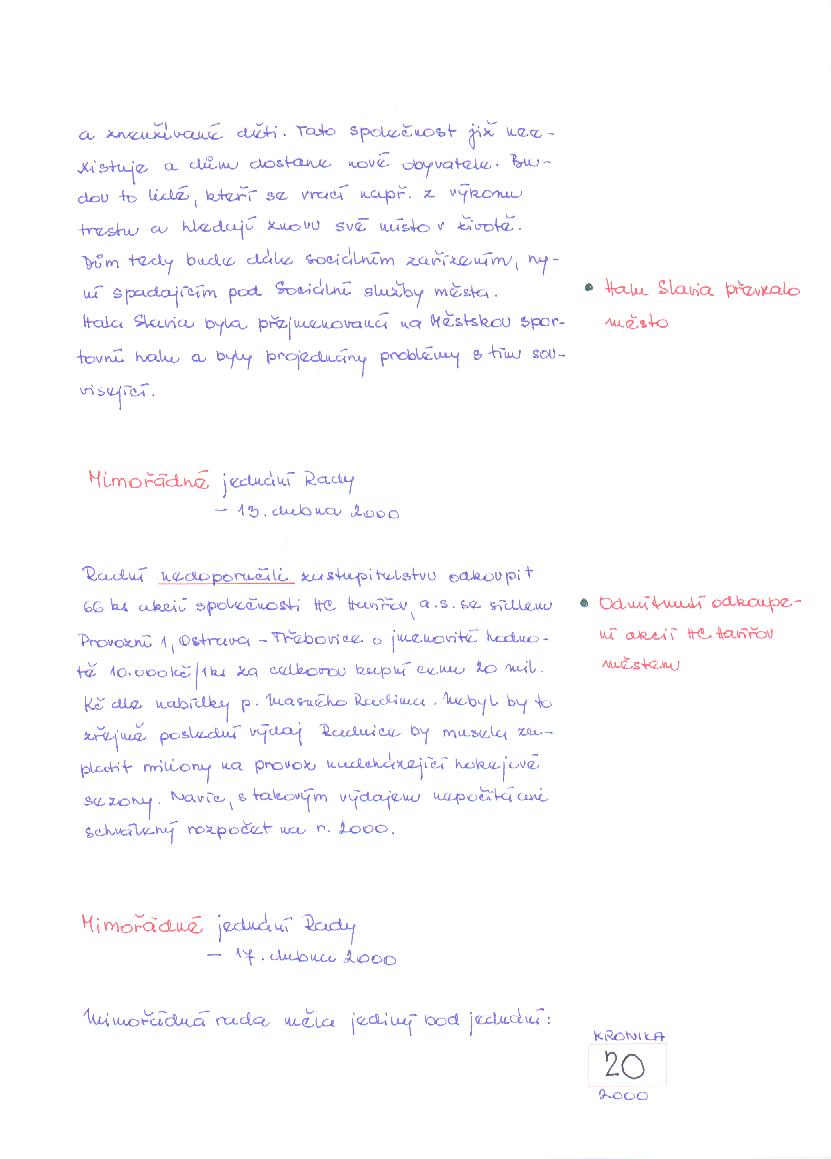 a zneužívané děti. Tato společnost již nee-
xistuje a dům dostane nové obyvatele. Bu-
dou to lidé, kteří se vrací např. z výkonu
trestu a hledají znovu své místo v životě.
Dům tedy bude dále sociálním zařízením, ny-
ní spadajícím pod Sociální služby města.
Hala Slavia byla přejmenovaná na Městskou spor-
tovní halu a byly projednány problémy s tím sou-
visející.
• Halu Slavia převzalo
město
Mimořádné jednání Rady
– 13. dubna 2000
Radní nedoporučili zastupitelstvu odkoupit
66 ks akcií společnosti HC Havířov, a.s. se sídlem
Provozní 1, Ostrava – Třebovice o jmenovité hodno-
tě 10.000 kč/1ks za celkovou kupní cenu 20 mil.
Kč dle nabídky p. Masného Radima. Nebyl by to
zřejmě poslední výdaj Radnice by musela za-
platit miliony na provoz nadcházející hokejové
sezony. Navíc, s takovým výdajem nepočítá ani
schválený rozpočet na r. 2000.
• Odmítnutí odkoupe-
ní akcií HC Havířov
městem
Mimořádné jednání Rady
– 17. dubna 2000
Mimořádná rada měla jediný bod jednání:
KRONIKA
20
2000